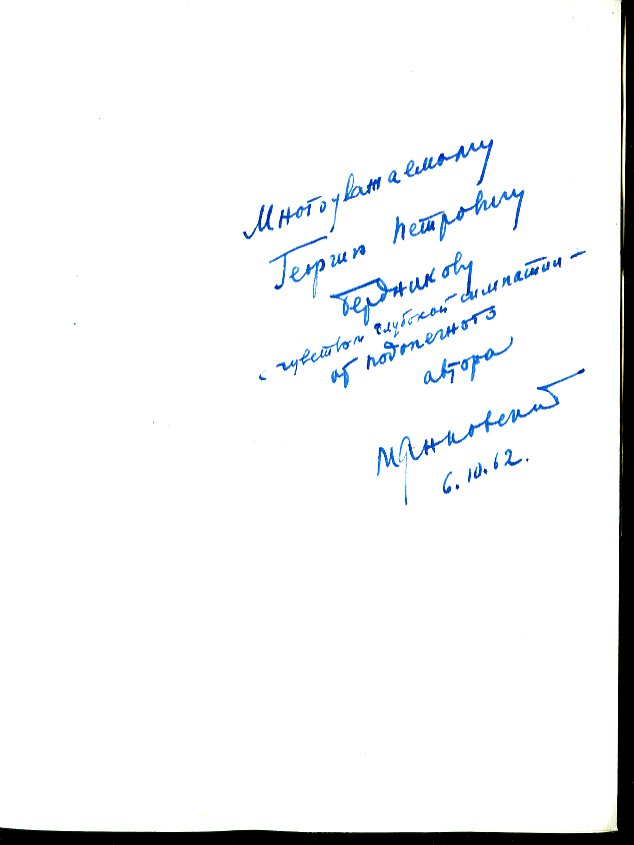 Многоуважаемому
Георгию Петровичу
Бердникову
с чувством глубокой симпатии –
от подопечного
автора
МЯнковский
6.10.62.